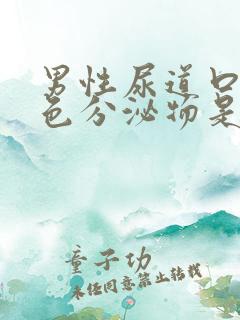 男性尿道口
色分泌物是
童子功
未经同意禁止转载